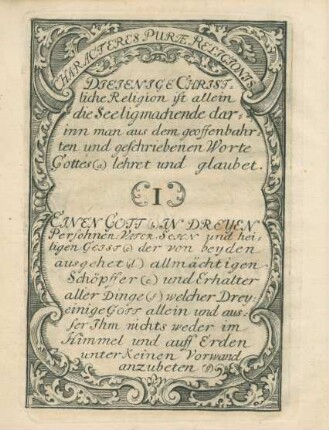 CHARACTERES PURÆ RELIGIONIS
DIEJENIGE CHRIST-
liche Religion ist allein
die Seeligmachende dar,
inn man aus dem geoffenbahr,
ten und geschriebenen Worte
Gottes (a) lehret und glaubet.
I
EINEN GOTT (b) IN DREYEN
Persohnen VATER SOHN und hei,
ligen GEIST (c) der von beyden
ausgehet (d) allmächtigen
Schöpffer (e) und Erhalter
aller Dinge (f) welcher Drey,
einige GOTT allein und aus,
ser Ihm nichts weder im
Himmel und auff Erden
unter keinen Vorwand
anzubeten